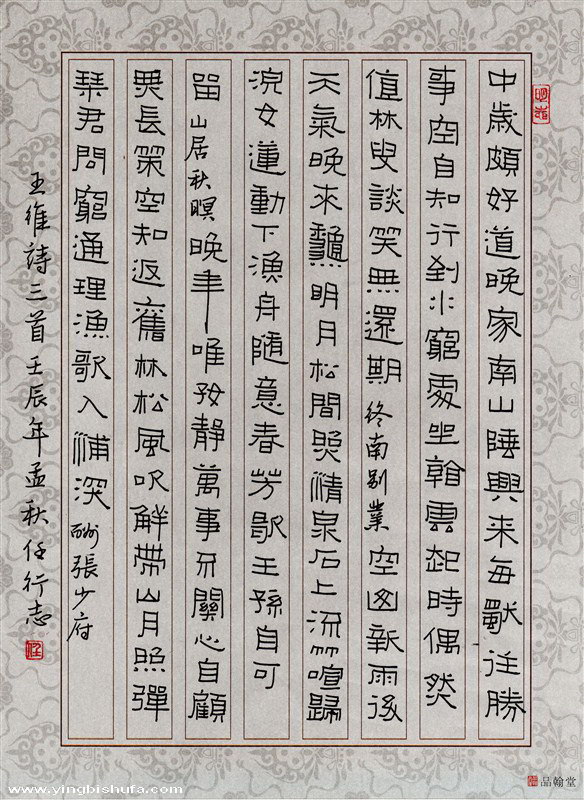 中歲頗好道晚家南山陲興来每獨往勝
事空自知行到水窮處坐看雲起時偶然
值林叟談笑無還期終南别業空山新雨後
天氣晚來秋明月松間照清泉石上流竹喧歸
浣女蓮動下漁舟隨意春芳歇王孫自可
留山居秋暝晚年唯好靜萬事不關心自顧
無長策空知返舊林松風吹解帶山月照彈
琴君問窮通理漁歌入浦深酬張少府
王維詩三首壬辰年孟秋任行志
www.yingbishufa.com
品翰堂